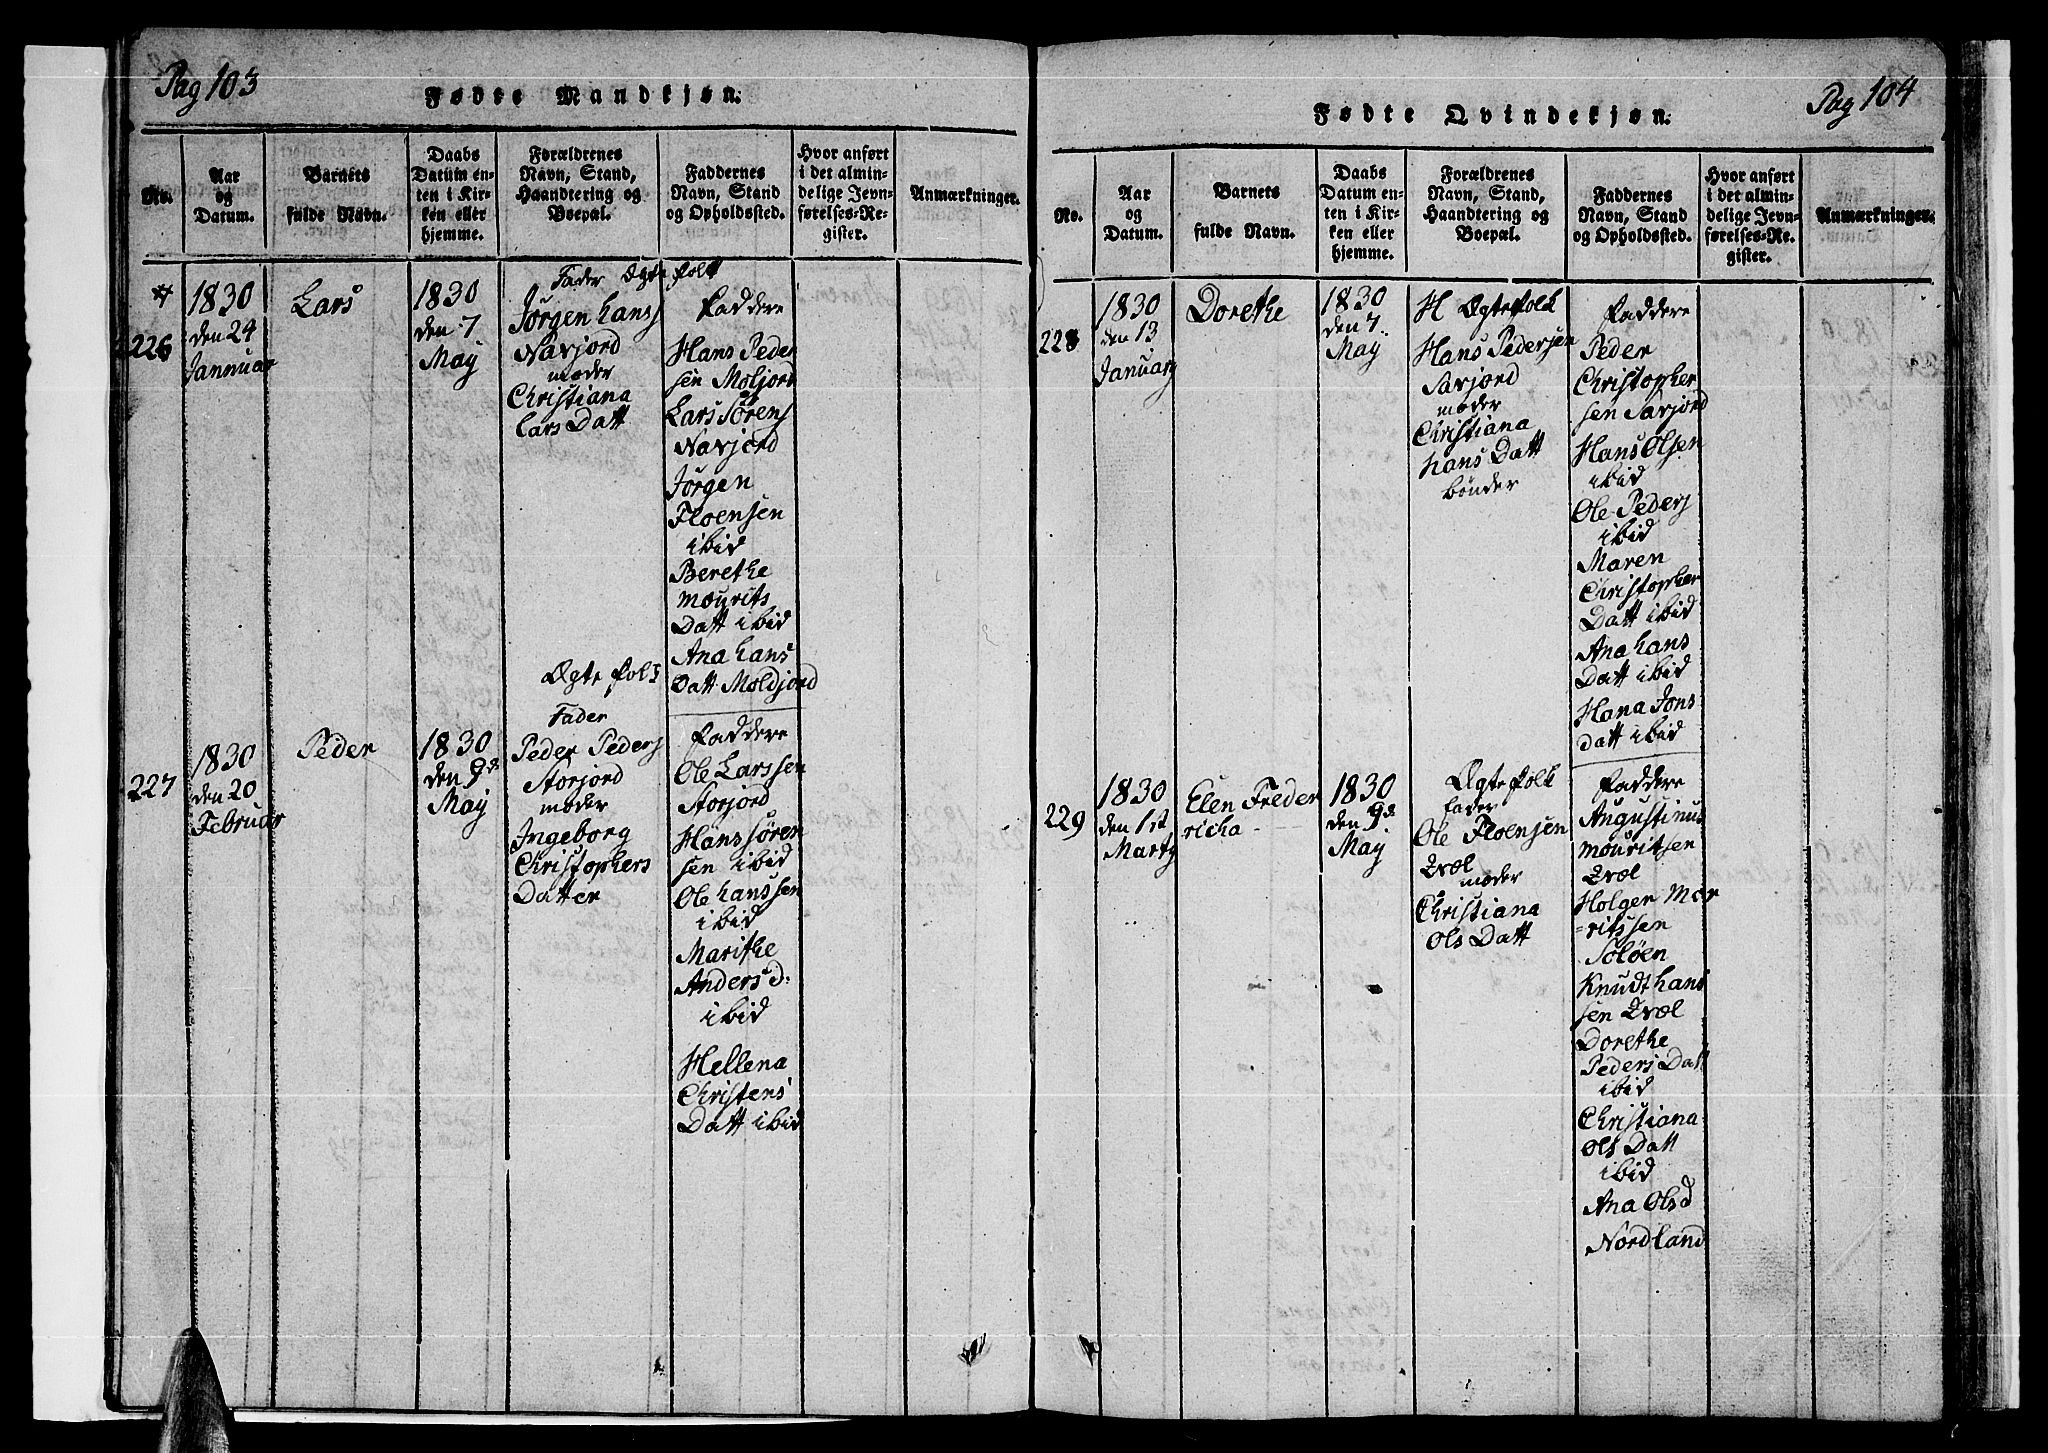 Pag 103
Fødte Mandkjøn.
No.
Aar
og
Datum.
Barnets
fulde Navn.
Daabs
Datum en-
ten i Kir-
ken eller
hjemme.
Forældrenes
Navn, Stand,
Haandtering og
Boepæl.
Faddernes
Navn, Stand
og Opholdssted.
Hvor anført
i det almin-
delige Jevn-
førelses-Re-
gister.
Anmærkninger.
226
1830
den 24
Jannuar
Lars
1830
den 7
May
Fader Ægte folk
Jørgen hansJ
Navjord
moder
Christiana
Lars Datt
Faddere
Hans Peder
sen Moljord
Lars Sørens
Navjord
Jørgen
Floensen
ibid
Berethe
mourits
Datt ibid
Ana hans
Datt Moldjord
227
1830
den 20
Februar
Peder
1830
den 9d
May
Ægte folk
Fader
Peder Peders
Storjord
moder
Ingeborg
Christophers
Datter
Faddere
Ole Larssen
Storjord
Hans søren
sen ibid
Ole hanssen
ibid
Marithe
Anders d:
ibid
Hellena
Christens
Datt ibid
Pag 104
Fødte Qvindekjøn.
No.
Aar
og
Datum.
Barnets
fulde Navn.
Daabs
Datum en-
ten i Kir-
ken eller
hjemme.
Forældrenes
Navn, Stand,
Haandtering og
Boepæl.
Faddernes
Navn, Stand
og Opholdssted.
Hvor anført
i det almin-
delige Jevn-
førelses-Re-
gister.
Anmærkninger.
228
1830
den 13
January
Dorethe
1830
den 7.
May
H Ægtefolk
Hans Pedersen
Savjord
moder
Christiana
hans Datt
bønder
Faddere
Peder
Christopher
sen Savjord
Hans Olsen
ibid
Ole Peders
ibid
Maren
Christopher
Datt ibid
Ana hans
Datt ibid
Hana Jons
datt ibid
229
1830
den 1st
Marty
Elen Freder
richa
1830
den 9d
May
Ægte folk
fader
Ole Floensen
Evæl
moder
Christiana
Ols Datt
Faddere
Augustinus
mouritsen
Evæl
Holger Mor
=ritssen
Soløen
Knudt hans
sen Evæl
Dorethe
Peders Datt
ibid
Christiana
Ols Datt
ibid
Ana Olsd
Nordland